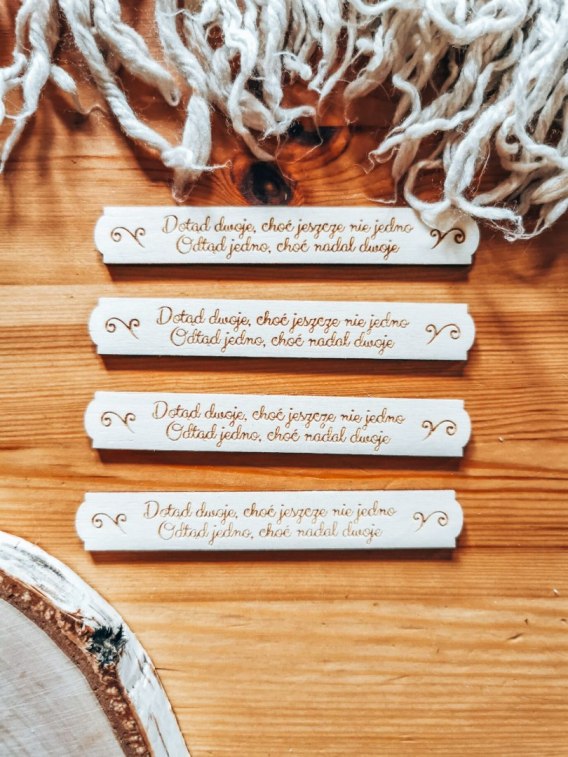 Dotąd dwoje, choć jeszcze nie jedno
Odtąd jedno, choć nadal dwoje
Dotąd dwoje, choć jeszcze nie jedno
Odtąd jedno, choć nadal dwoje
Dotąd dwoje, choć jeszcze nie jedno
Odtąd jedno, choć nadal dwoje
Dotąd dwoje, choć jeszcze nie jedno
Odtąd jedno, choć nadal dwoje